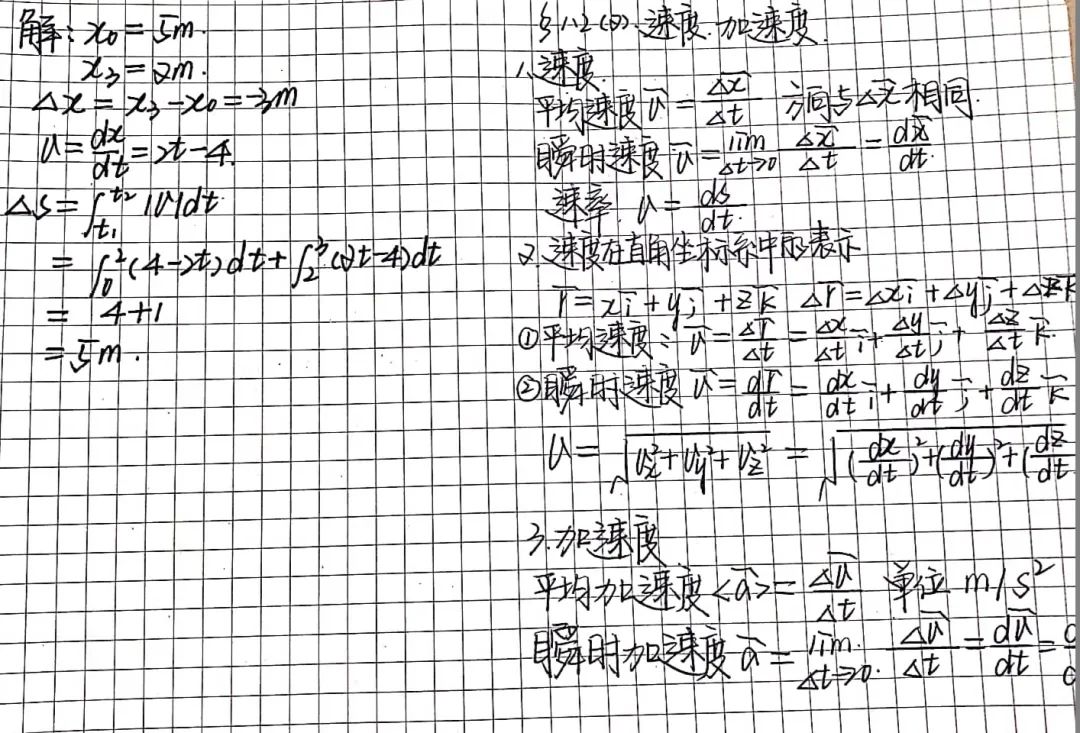 解: x₀ = 5m.
x₃ = 2m.
Δx = x₃ - x₀ = -3m
v = dx/dt = 2t - 4.
Δs = ∫_{t₁}^{t₂} |v|dt
= ∫₀²(4-2t)dt + ∫₂³(2t-4)dt
= 4+1
= 5m.
§1.2(2). 速度. 加速度.
1. 速度.
平均速度 v⃗ = Δx⃗/Δt 方向与Δx⃗相同.
瞬时速度 v⃗ = lim_{Δt→0} Δx⃗/Δt = dx⃗/dt.
速率. v = ds/dt.
2. 速度在直角坐标系中的表示
r⃗ = xi⃗ + yj⃗ + zk⃗ Δr⃗ = Δxi⃗ + Δyj⃗ + Δzk⃗
①平均速度: v⃗ = Δr⃗/Δt = Δx/Δt i⃗ + Δy/Δt j⃗ + Δz/Δt k⃗.
②瞬时速度 v⃗ = dr⃗/dt = dx/dt i⃗ + dy/dt j⃗ + dz/dt k⃗
v = √(vₓ² + v_y² + v_z²) = √((dx/dt)² + (dy/dt)² + (dz/dt
3. 加速度
平均加速度 <a⃗> = Δv⃗/Δt 单位 m/s²
瞬时加速度 a⃗ = lim_{Δt→0}. Δv⃗/Δt = dv⃗/dt =